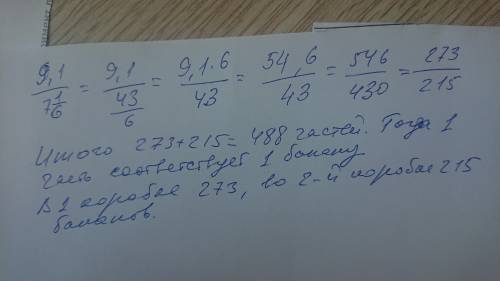 9,1 / 7 1/6 = 9,1 / 43/6 = 9,1·6 / 43 = 54,6 / 43 = 546 / 430 = 273 / 215
Итого 273+215= 488 частей. Тогда 1
часть соответствует 1 банану
В 1 коробке 273, во 2-й коробке 215
бананов.